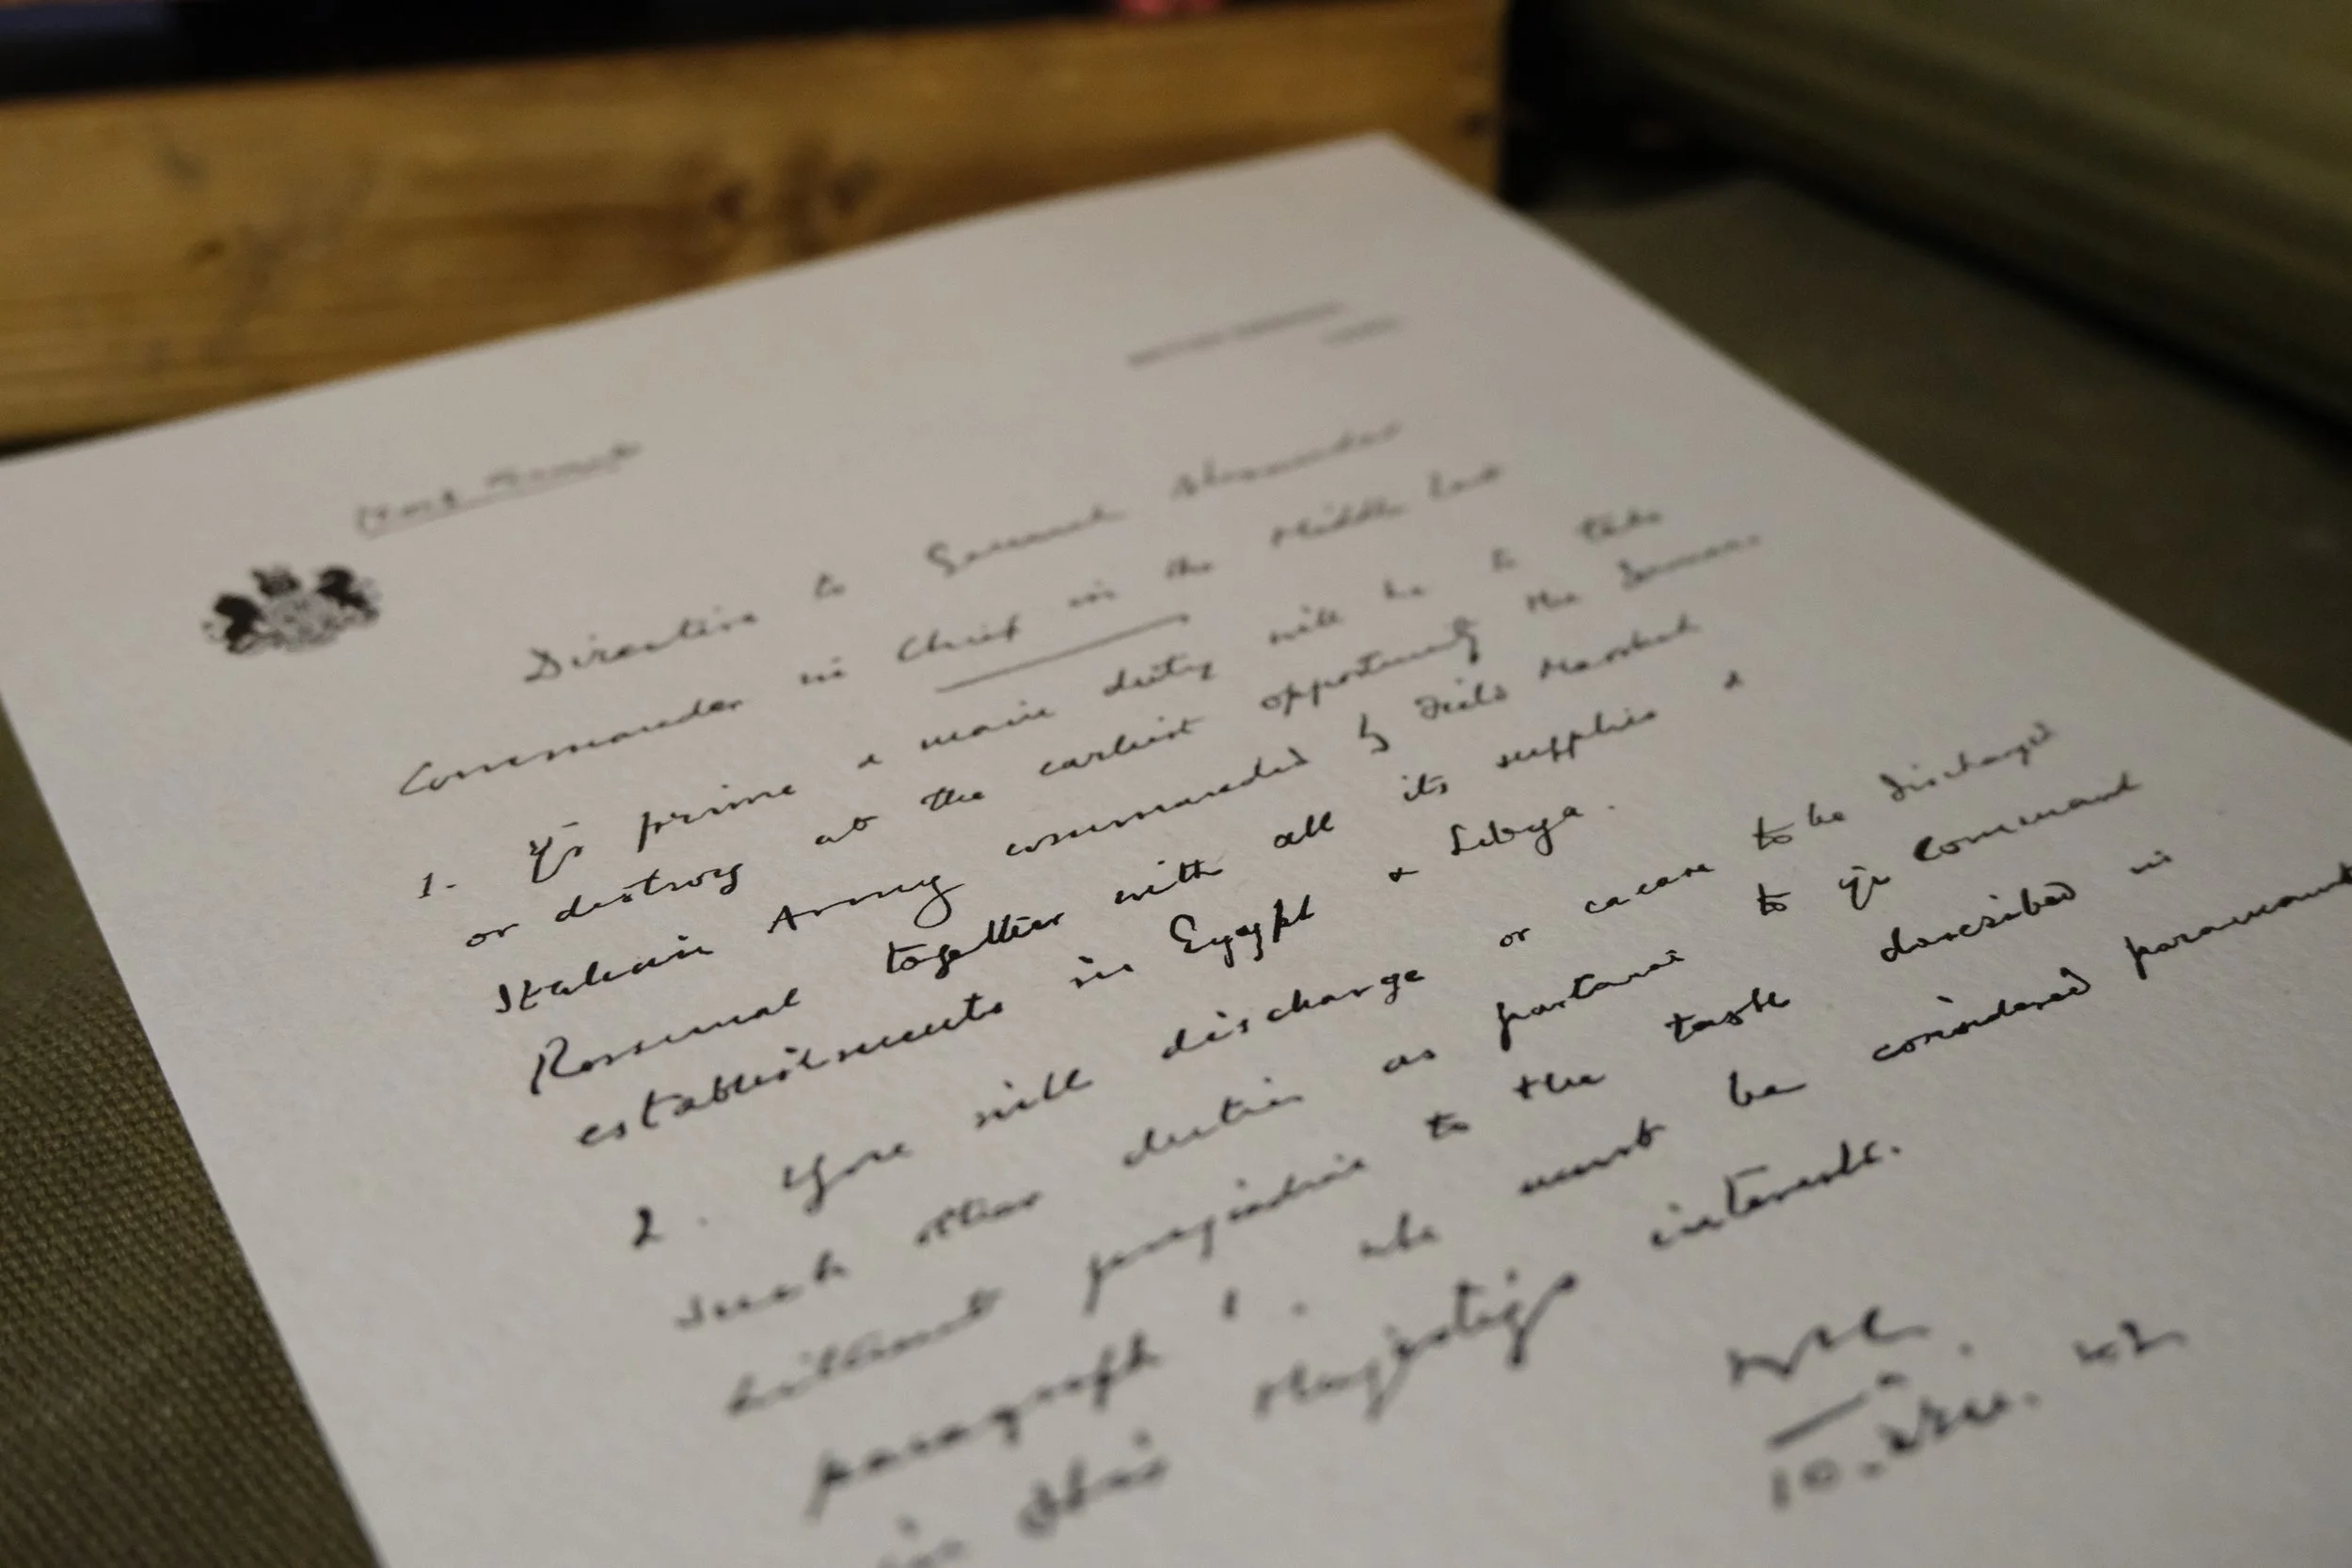 Most Secret
Directive to General Alexander
Commander in Chief in the Middle East
1. Yr prime & main duty will be to take
or destroy at the earliest opportunity the German-
Italian Army commanded by Field Marshal
Rommel together with all its supplies &
establishments in Egypt & Libya.
2. You will discharge or cause to be discharged
such other duties as pertain to yr Command
without prejudice to the task described in
paragraph 1. wh must be considered paramount
in His Majesty's interests.
WSC
10. 42